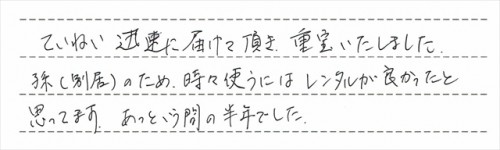 ていねい 迅速に届けて頂き、重宝いたしました。
孫(別居)のため、時々使うには レンタルが良かったと
思ってます。あっという間の半年でした。